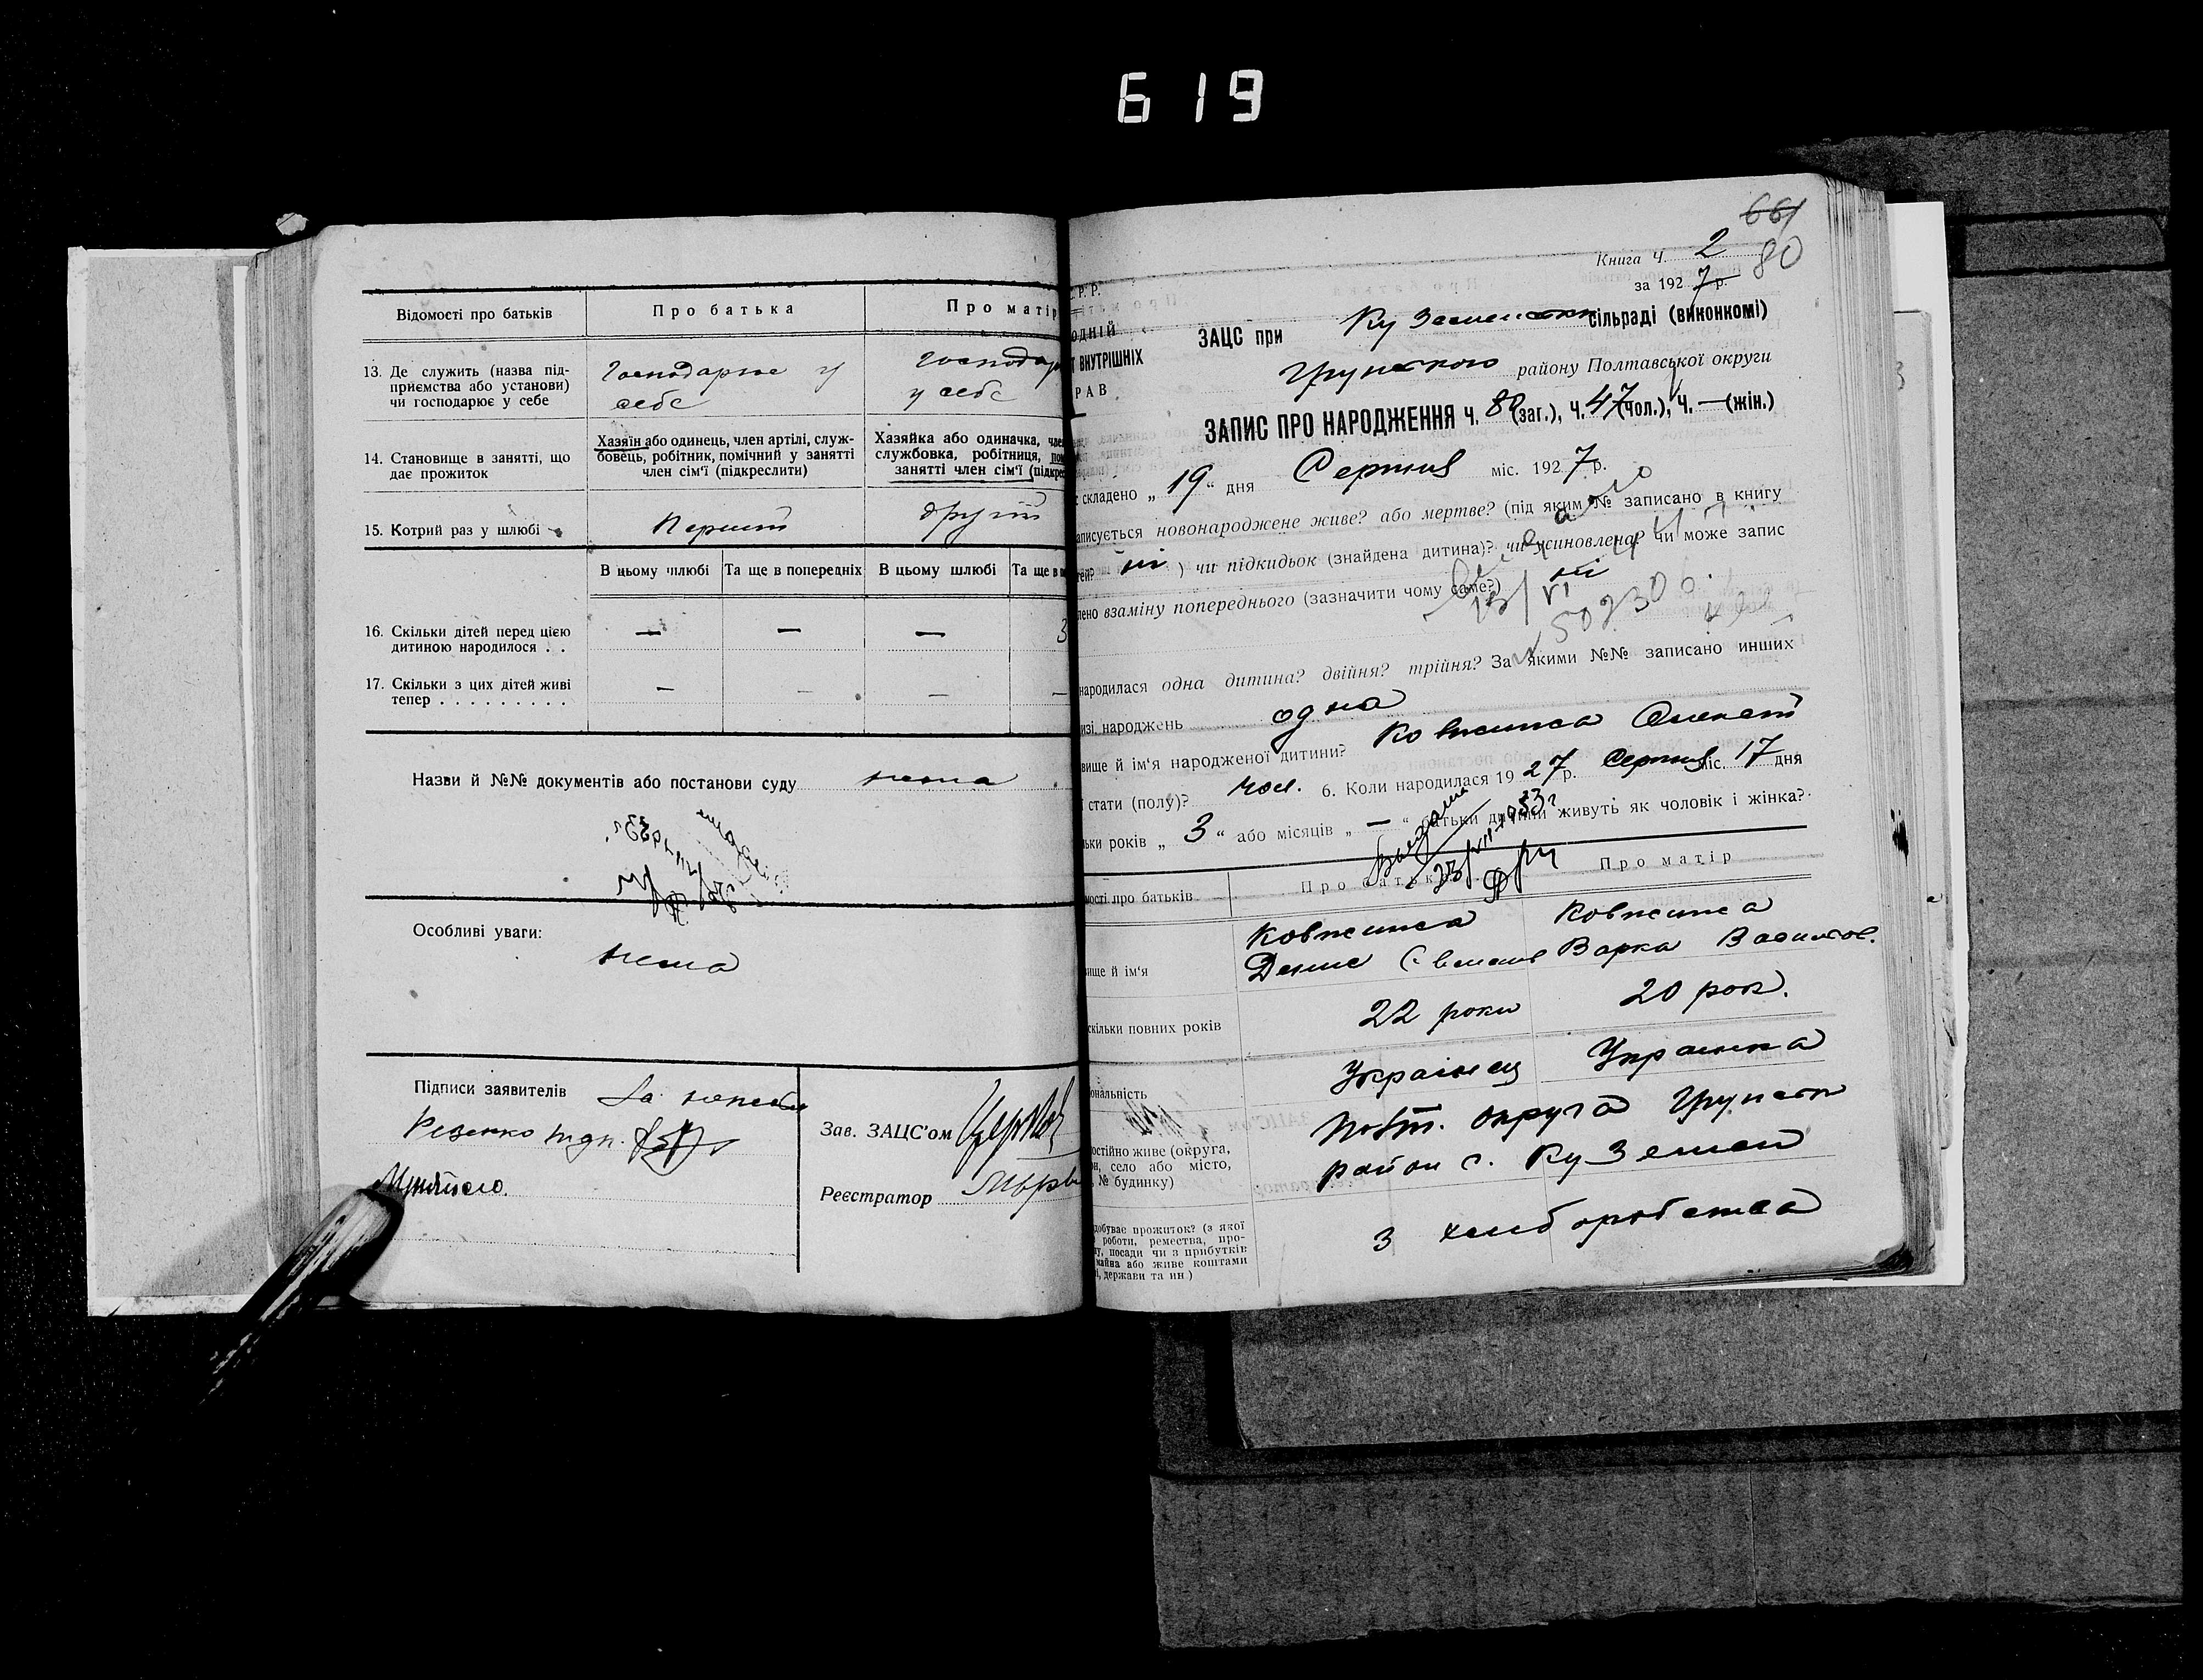 619
Відомості про батьків
Про батька
Про матір
13. Де служить (назва під-
приємства або установи)
чи господарює у себе
Господарює у
себе
господар
у себе
14. Становище в занятті, що
дає прожиток
Хазяїн або одинець, член артілі, служ-
бовець, робітник, помічний у занятті
член сім'ї (підкреслити)
Хазяйка або одиначка, член
службовка, робітниця, пом
занятті член сім'ї (підкрес
15. Котрий раз у шлюбі
Перший
другий
В цьому шлюбі
Та ще в попередніх
В цьому шлюбі
Та ще в п
16. Скільки дітей перед цією
дитиною народилося . .
— — — 3
17. Скільки з цих дітей живі
тепер . . . . . . . . .
— — — —
Назви й №№ документів або постанови суду нема
Особливі уваги:
нема
Підписи заявителів За непись
Резенко
Зав. ЗАЦС'ом
Реєстратор
661
80
Книга Ч. 2
за 1927 р.
Р. Р.
ОДНІЙ
Т ВНУТРІШНІХ
РАВ
ЗАЦС при Куземенськ сільраді (виконкомі)
Грунського району Полтавської округи
ЗАПИС ПРО НАРОДЖЕННЯ ч. 80 (заг.), ч. 47 (чол.), ч. — (жін.)
складено „ 19 “ дня Серпня міс. 1927 р.
аписується новонароджене живе? або мертве? (під яким № записано в книгу
тей? ні ) чи підкидьок (знайдена дитина)? чи усиновлена? чи може запис
лено взаміну попереднього (зазначити чому саме?) ні
народилася одна дитина? двійня? трійня? За якими №№ записано инших
изі народжень одна
вище й ім'я народженої дитини? Ковжина Олексій
ї стати (полу)? чол. 6. Коли народилася 1927 р. Серпня міс. 17 дня
ьки років „ 3 “ або місяців „ — “ батьки дитини живуть як чоловік і жінка?
мості про батьків
Про батька
Про матір
вище й ім'я
Ковжина
Денис
Ковжина
Варка Васильов.
скільки повних років
22 роки
20 рок.
ональність
Українец
Українка
остійно живе (округа,
он, село або місто,
№ будинку)
Полт. округа Грунськ
район с. Куземен
добуває прожиток? (з якої
роботи, ремества, про-
у, посади чи з прибутків
майна або живе коштами
ї, держави та ин.)
З хліборобства